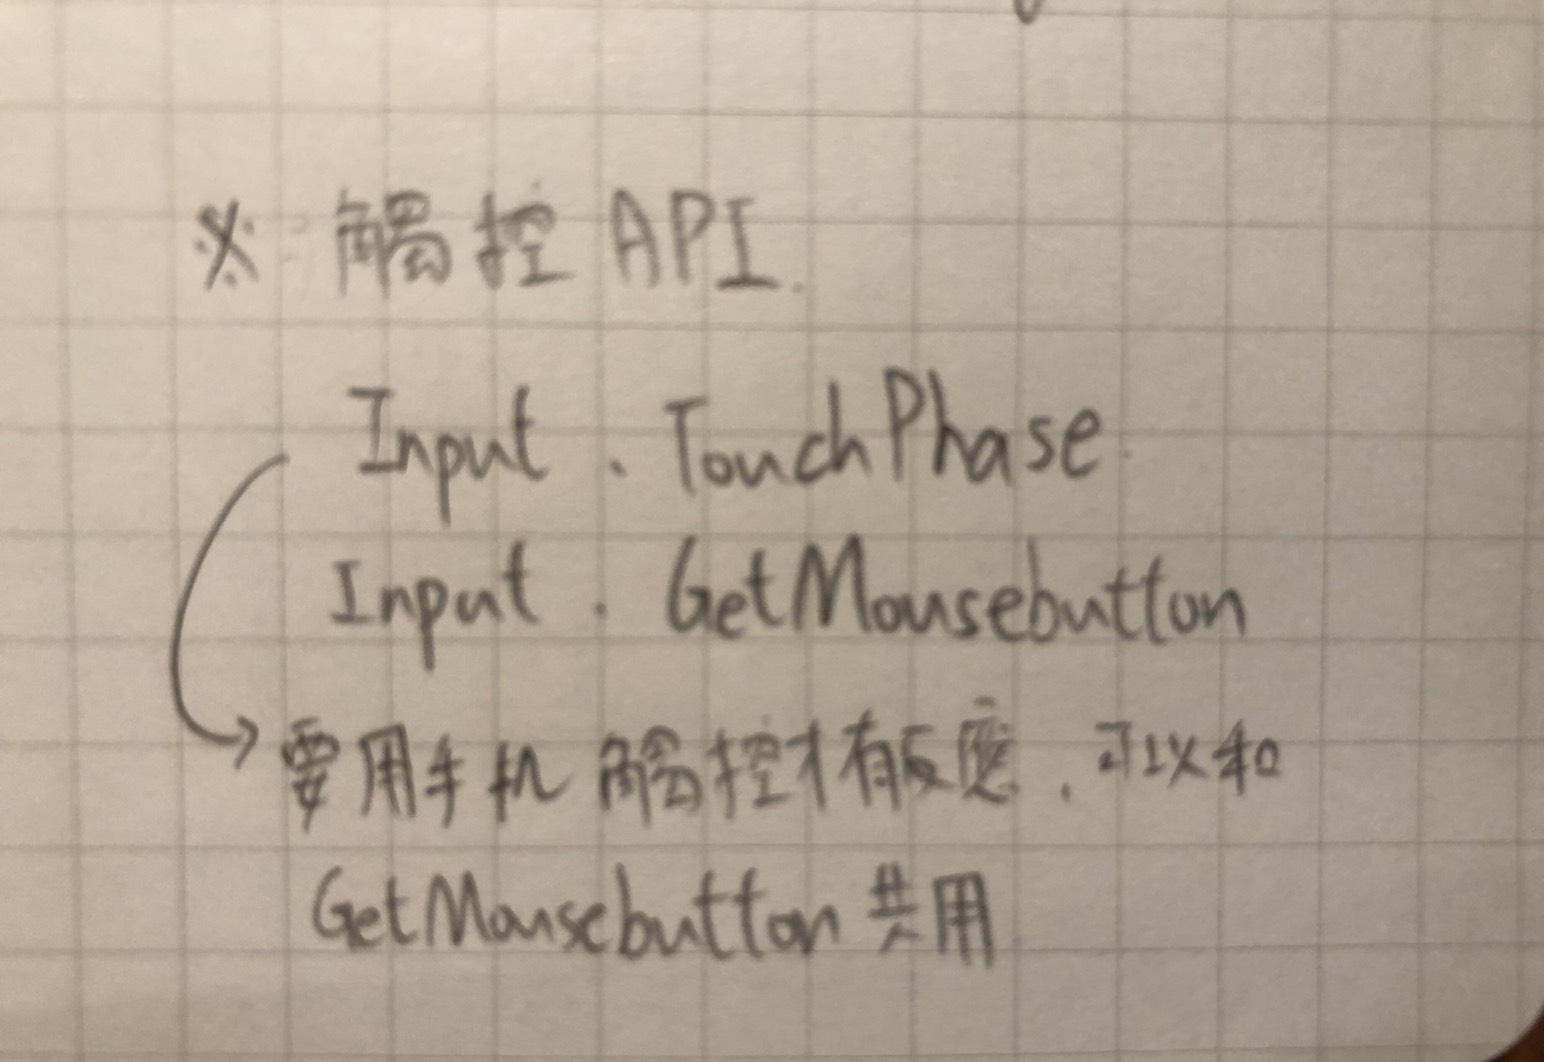 ※ 觸控 API.
Input . TouchPhase
Input . GetMousebutton
要用手机觸控才有反應. 可以和
GetMousebutton 共用